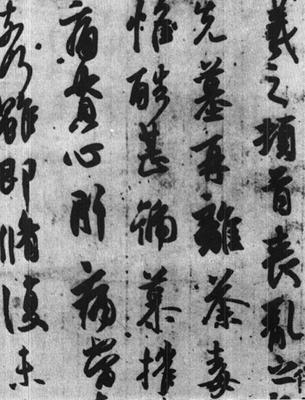 羲之頓首喪亂之
先墓再離荼毒
惟酷甚號慕摧
痛貫心肝痛當
奈何雖即脩復未